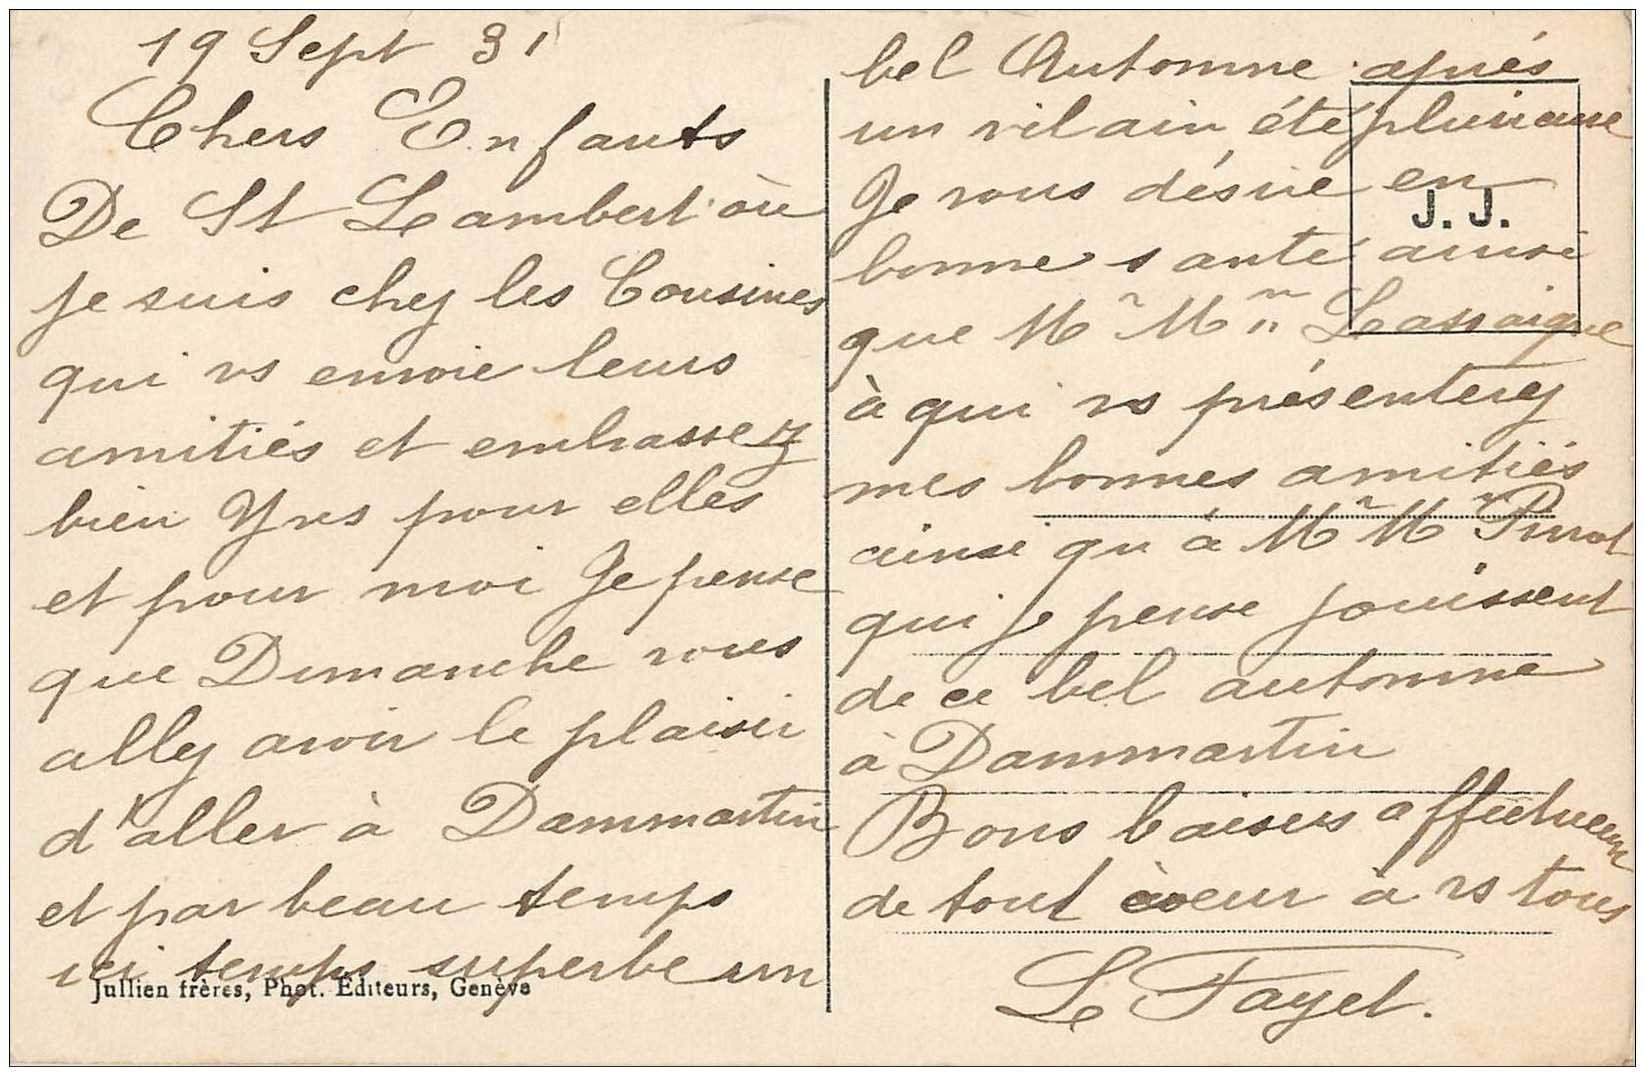 19 Sept 31
Chers Enfants
De St Lambert où
je suis chez les Cousines
qui vs envoie leurs
amitiés et embrassez
bien Yves pour elles
et pour moi Je pense
que Dimanche vous
allez avoir le plaisir
d'aller à Dammartin
et par beau temps
ici temps superbe un
Jullien frères, Phot. Editeurs, Genève
bel Automne après
un vilain été pluvieuse
Je vous désire en
J. J.
bonne santé ainsi
que Mr Mm Lassaigne
à qui vs présenterez
mes bonnes amitiés
ainsi qu à Mr M
qui je pense jouissent
de ce bel automne
à Dammartin
Bons baisers affectueux
de tout coeur à vs tous
Le Fayet.